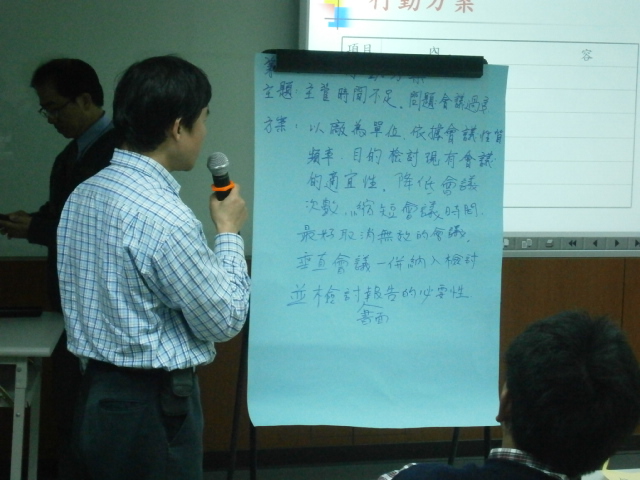 行動方案
項目 內 容
主題：主管時間不足，問題：會議過多
方案：以廠為單位，依據會議性質
頻率，目的檢討現有會議
的適宜性，降低會議
次數，縮短會議時間，
最好取消無效的會議，
垂直會議一併納入檢討
並檢討報告的必要性
書面